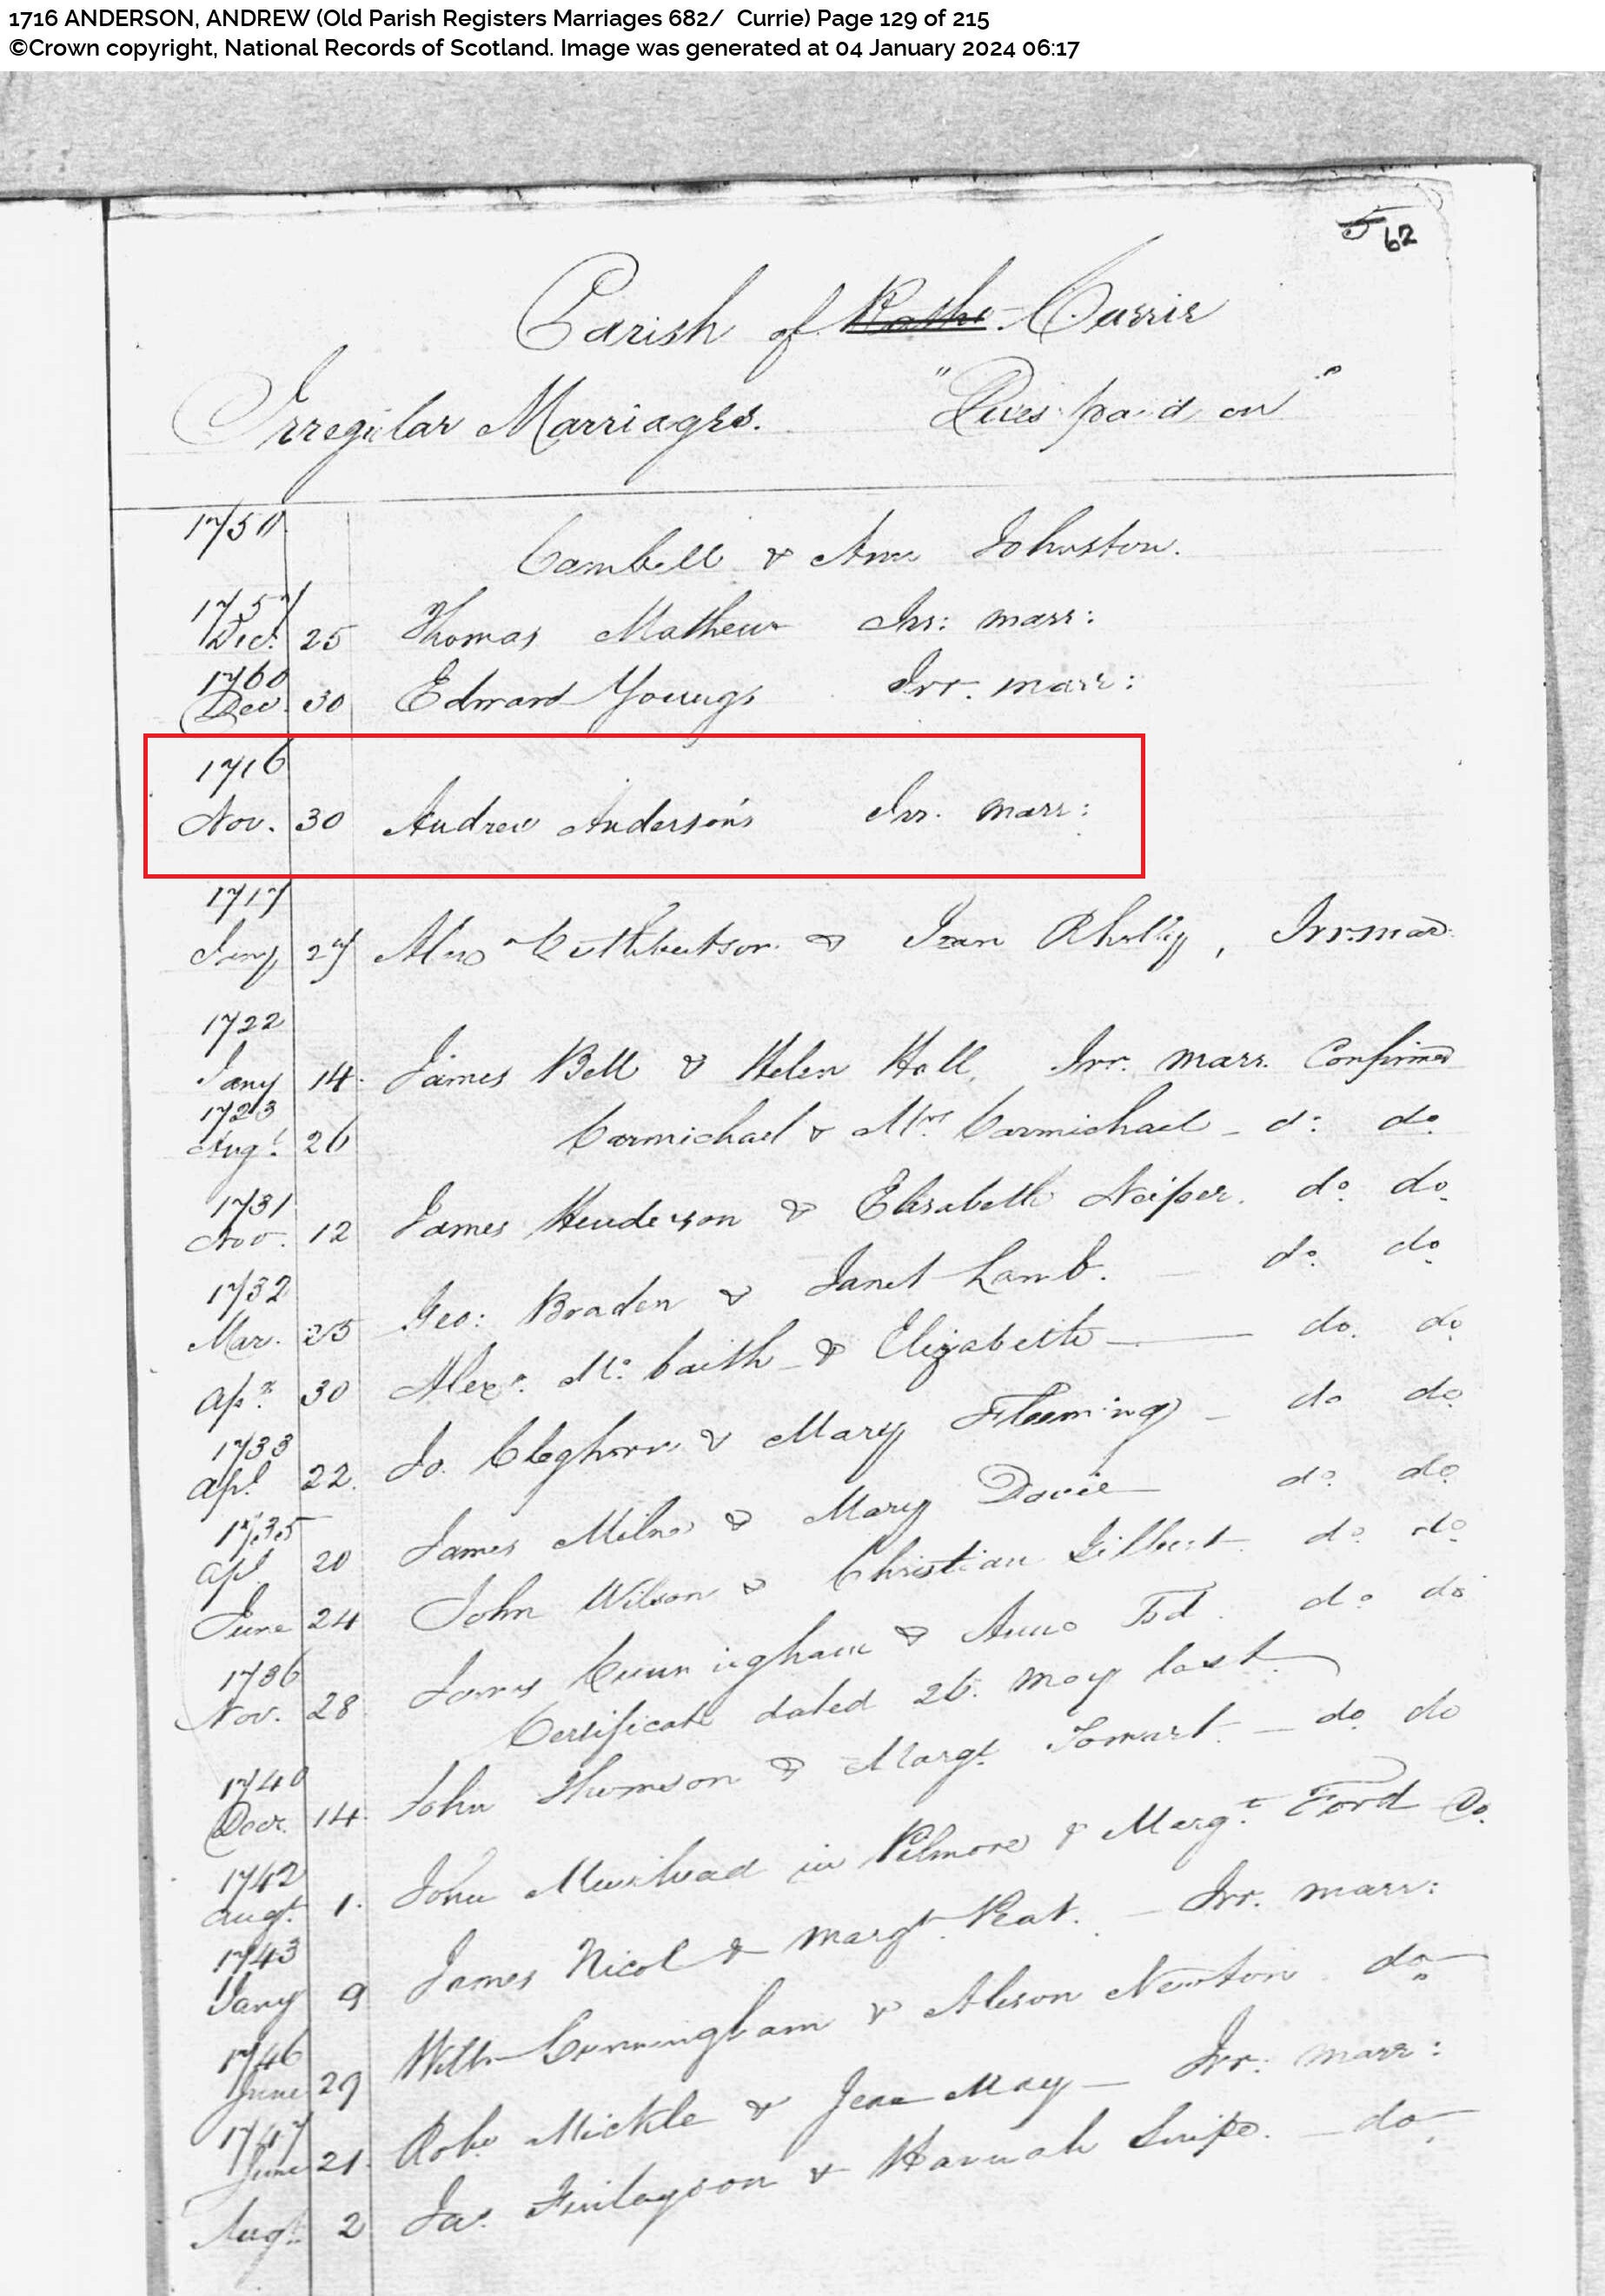 1716 ANDERSON, ANDREW (Old Parish Registers Marriages 682/ Currie) Page 129 of 215
©Crown copyright, National Records of Scotland. Image was generated at 04 January 2024 06:17
5 62
Parish of Ratho Currie
Irregular Marriages. "Dues paid on"
1750
Cambell & Ann Johnston.
1757
Dec. 25 Thomas Mathew Irr: marr:
1760
Dec. 30 Edward Youngs Irr. marr:
1716
Nov. 30 Andrew Anderson's Irr. marr:
1717
Jany 27 Alexr Cuthbertson & Jean , Irr. mar.
1722
Jany 14. James Bell & Helen Hall. Irr. marr. Confirmed
1723
Augt. 26 Carmichael & Mrs. Carmichael - do: do.
1731
Nov. 12 James Henderson & Elisabeth Neiper. do. do.
1732
Mar. 25 Geo: Braden & Janet Lamb. - do. do.
Apr. 30 Alexr. Mc. baith & Elizabeth — do. do.
1733
Apl. 22. Jo. Cleghorn & Mary Fleeming - do do.
1735
Apl 20 James Miln & Mary Davie do. do.
June 24 John Wilson & Christian Gilbert do. do.
1736
Nov. 28 James Cunningham & Anne Tod. do. do
Certificate dated 26. May last
1740
Decr. 14. John Thomson & Margt. - do. do
1742
Augt. 1. John Muirhead in Pilmore & Margt. Ford Do.
1743
Jany 9 James Nicol & Margt. Peat. - Irr. marr:
1746
June 29 Willm Cunningham & Alison Newton do.
1747
June 21. Robt Mickle & Jean May - Irr: marr:
Augt. 2 Jas. Finlayson & Hannah Snipe. - do.